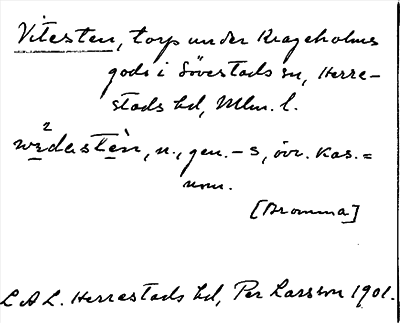 Vitesten, torp under Krageholms
gods i Sövestads sn, Herre-
stads hd, Mlm. l.
2
wɛdestèn, n., gen. -s, övr. kas. =
nom.
[Bromma]
L A L. Herrestads hd, Per Larsson 1901.